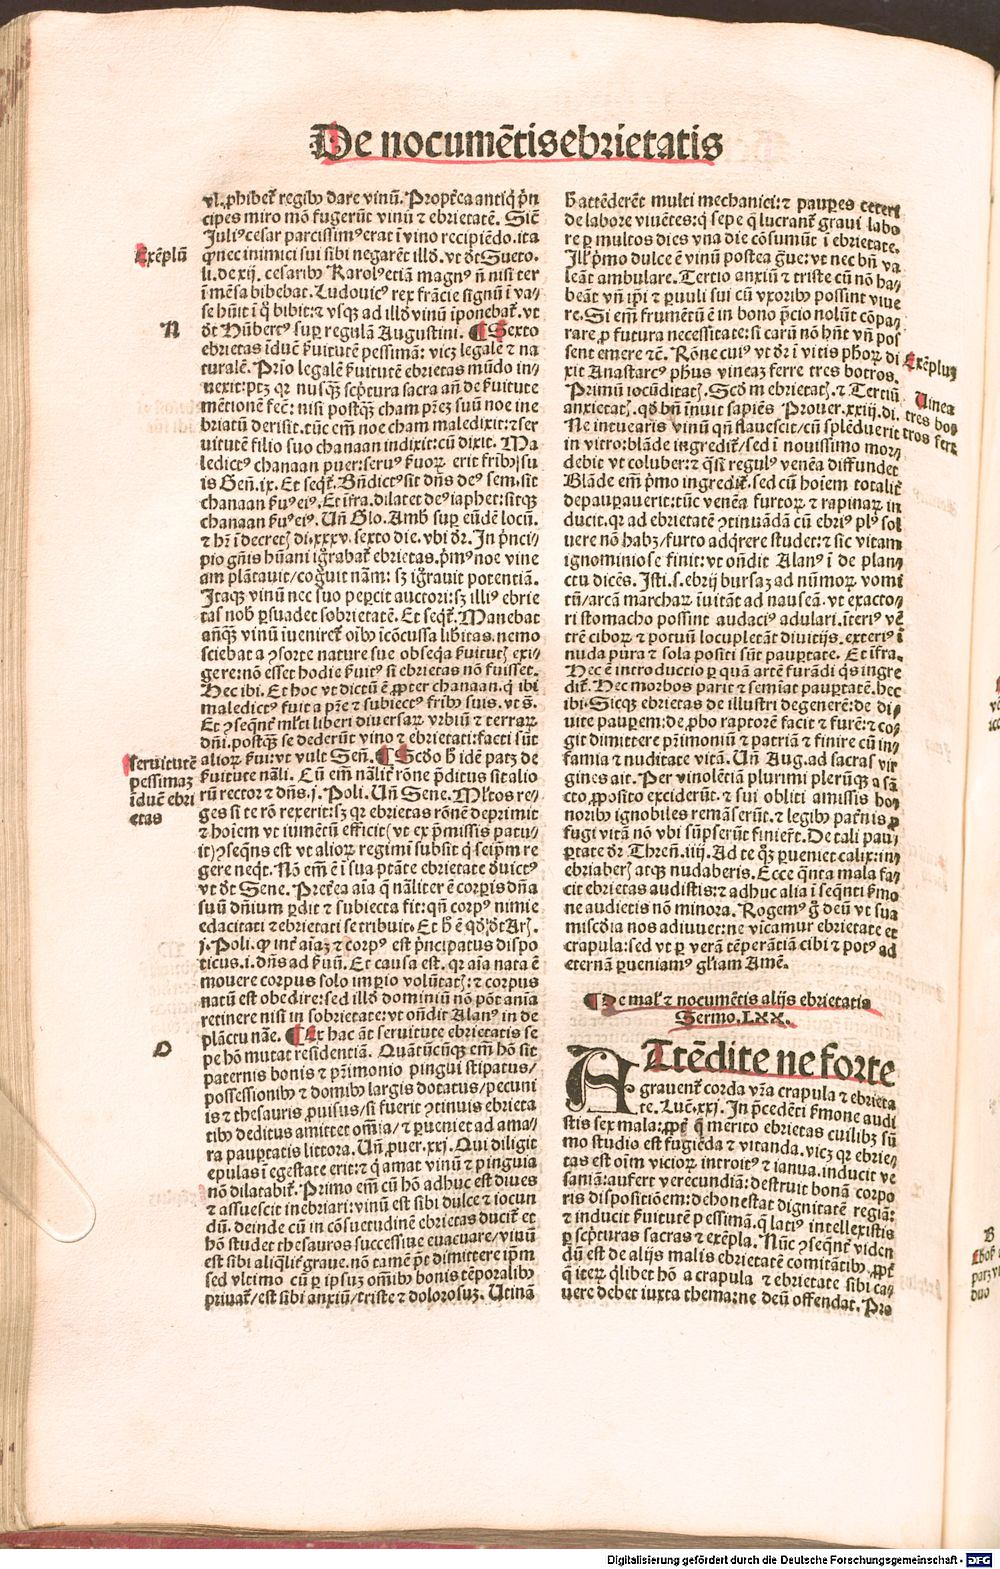 De nocumētis ebrietatis
vl. ꝓhibet᷑ regibꝰ dare vinū. Propt̄ea antiq̇ pn̄
cipes miro mō fugerūt vinū ⁊ ebrietatē. Sic̄
Juliꝰ cesar parcissimꝰ erat ī vino recipiēdo. ita
ꝙ nec inimici sui sibi negarēt illd̄. vt dt̄ Sueto.
li. de xij. cesaribꝰ Karolꝰ etiā magnꝰ n̄ nisi ter
ī mēsa bibebat. Ludouicꝰ rex frācie signū ī va⸗
se hūit ī q̇ bibit: ⁊ vsq̄ ad illd̄ vinū īponebat᷑. vt
dt̄ Hūbertꝰ suꝑ regulā Augustini. ¶ Sexto
ebrietas īduc̄ ẜuitutē pessimā: vicꝫ legalē ⁊ na
turalē. Prīo legalē ẜuitutē ebrietas mūdo in⸗
uexit: ptꝫ qꝛ nusq̄ꝫ scp̄tura sacra an̄ de ẜuitute
mētionē fec̄: nisi postq̄ꝫ cham pr̄eꝫ suū noe ine
briatū derisit. tūc em̄ noe cham maledixit: ⁊ ser
uitutē filio suo chanaan indixit: cū dixit. Ma
ledictꝰ chanaan puer: seruꝰ ẜuoꝝ erit fr̄ibꝰ su
is Gen̄. ix. Et seqt᷑. Bn̄dictꝰ sit dn̄s deꝰ sem. sit
chanaan ẜuꝰ eiꝰ. Et īfra. dilatet deꝰ iaphet: sitqꝫ
chanaan ẜuꝰ eiꝰ. Un̄ Glo. Amb̄ suꝑ eūdē locū.
⁊ hr̄ ī decret. di. xxxv. sexto die. vbi dr̄. In pn̄ci⸗
pio gn̄is hūani iḡrabat᷑ ebrietas. pm̄ꝰ noe vine
am plātauit/cog̊uit nām: sꝫ ig̊rauit potentiā.
Itaqꝫ vinū nec suo peꝑcit auctori: sꝫ illiꝰ ebrie
tas nob̄ ꝑsuadet sobrietatē. Et seqt᷑. Manebat
an̄qꝫ vinū īueniret᷑ oībꝰ īcōcussa lib̄tas. nemo
sciebat a ꝯsorte nature sue obseq̄a ẜuitutꝭ exi⸗
gere: nō esset hodie ẜuitꝰ si ebrietas nō fuisset.
Hec ibi. Et hoc vt dictū ē ꝓpter chanaan. q̇ ibi
maledictꝰ fuit a pr̄e ⁊ subiectꝰ fr̄ibꝰ suis. vt s̄.
Et ꝯseqn̄t ml̄ti liberi diuersaꝝ vrbiū ⁊ terraꝝ
dn̄i. postq̄ꝫ se dederūt vino ⁊ ebrietati: facti sūt
alioꝝ ẜui: vt vult Sen̄. ¶ Scd̄o h̄ idē patꝫ de
ẜuitute nāli. Cū em̄ nālit᷑ rōne pditus sit alio
rū rector ⁊ dn̄s. j. Poli. Un̄ Sene. Ml̄tos re⸗
ges si te rō rexerit: sꝫ qꝛ ebrietas rōnē deprimit
⁊ hoīem vt iumētū efficit (vt ex pm̄issis patu⸗
it) ꝯseqn̄s est vt alioꝝ regimi subsit q̇ seip̄m re
gere neqt᷑. Nō em̄ ē ī sua ptāte ebrietate deuictꝰ
vt dt̄ Sene. Pret̄ea aīa q̄ nāliter ē corꝑis dn̄a
suū dn̄ium ꝑdit ⁊ subiecta fit: qn̄ corpꝰ nimie
edacitati ⁊ ebrietati se tribuit. Et h̄ ē qd̄ dt̄ Ar.
j. Poli. ꝙ int᷑ aīaꝫ ⁊ corpꝰ est pn̄cipatus dispo
ticus. i. dn̄s ad ẜuū. Et causa est. qꝛ aīa nata ē
mouere corpus solo imꝑio volūtatꝭ: ⁊ corpus
natū est obedire: sed illd̄ dominiū nō pōt anīa
retinere nisi in sobrietate: vt on̄dit Alanꝰ in de
plāctu nāe. ¶ Ex hac āt seruitute ebrietatis se
pe hō mutat residentiā. Quātūcūqꝫ em̄ hō sit
paternis bonis ⁊ pr̄imonio pingui stipatus/
possessionibꝰ ⁊ domibꝰ largis dotatus/pecuni
is ⁊ thesauris ꝓuisus/si fuerit ꝯtinuis ebrieta
tibꝰ deditus amittet om̄ia/⁊ ꝑueniet ad ama⸗
ra pauꝑtatis littora. Un̄ ꝓuer. xxj. Qui diligit
epulas ī egestate erit: ⁊ q̇ amat vinū ⁊ pinguia
nō ditabit᷑. Primo em̄ cū hō adhuc est diues
⁊ assuescit inebriari: vinū est sibi dulce ⁊ iocun
dū. deinde cū in cōsuetudinē ebrietas ducit᷑ et
hō studet thesauros successiue euacuare/vinū
est sibi aliqlit᷑ graue. nō tamē pt̄ dimittere ip̄m
sed vltimo cū ꝑ ipsuꝫ om̄ibꝰ bonis tēporalibꝰ
priuat᷑/est sibi anxiū/triste ⁊ dolorosuꝫ. Utinā
Exēplū
N
seruitutē
pessimaꝫ
īducē ebri
etas
O
h̄ attēderēt multi mechanici: ⁊ pauꝑes ceteri
de labore viuētes: q̇ sepe q̄ lucrant᷑ graui labo
re ꝑ multos dies vna die cōsumūt ī ebrietate.
Ill̄ pm̄o dulce ē vinū postea g̈ue: vt nec bn̄ va
leāt ambulare. Tertio anxiū ⁊ triste cū nō ha⸗
beāt vn̄ ip̄i ⁊ ꝑuuli sui cū vxoribꝰ possint viue
re. Si em̄ frumētū ē in bono pcio nolūt cōpa⸗
rare ꝓ futura necessitate: si carū nō hn̄t vn̄ pos
sent emere ⁊c̄. Rōne cuiꝰ vt dr̄ ī vitis ph̄oꝝ di
xit Anastarcꝰ ph̄us vineaꝫ ferre tres botros.
Primū iocūditatꝭ. Scd̄m ebrietatꝭ. ⁊ Tertiū
anxietatꝭ. qd̄ bn̄ īnuit sapiēs Prouer. xxiij. di.
Ne intuearis vinū qn̄ flauescit/cū splēduerit
in vitro: blāde ingredit᷑/sed ī nouissimo mor⸗
debit vt coluber: ⁊ q̄si regulꝰ venēa diffundet
Blāde em̄ pm̄o ingredit᷑. sed cū hoīem totalit᷑
depauꝑauerit: tūc venēa furtoꝝ ⁊ rapinaꝝ in
ducit. qꝛ ad ebrietatē ꝯtinuādā cū ebriꝰ plꝰ sol
uere nō habꝫ/furto adq̇rere studet: ⁊ sic vitam
ignominiose finit: vt on̄dit Alanꝰ ī de plan⸗
ctu dicēs. Isti. s. ebrij bursaꝫ ad nūmoꝝ vomi
tū/arcā marcharꝝ īuitāt ad nauseā. vt exacto⸗
ri stomacho possint audaciꝰ adulari. īteriꝰ vē
trē ciboꝝ ⁊ potuū locupletāt diuitijs. exteriꝰ ī
nuda pura ⁊ sola positi sūt pauꝑtate. Et īfra.
Hec ē introductio ꝑ quā artē furādi q̇s ingre
dit᷑. Hec morbos parit ⁊ semīat pauꝑtatē. hec
ibi. Sicqꝫ ebrietas de illustri degenerē: de di⸗
uite pauꝑem: de ꝓbo raptorē facit ⁊ furē: ⁊ co⸗
git dimittere pr̄imoniū ⁊ patriā ⁊ finire cū in⸗
famia ⁊ nuditate vitā. Un̄ Aug. ad sacras vir
gines ait. Per vinolētiā plurimi plerūqꝫ a sā
cto ꝓposito exciderūt. ⁊ sui obliti amissis ho⸗
noribꝰ ignobiles remāserūt. ⁊ legibꝰ pat̄nis ꝓ
fugi vitā nō vbi sūpserūt finier̄t. De tali pau⸗
ꝑtate dr̄ Thren̄. iiij. Ad te qꝫ ꝑueniet calix: in⸗
ebriaberꝭ atqꝫ nudaberis. Ecce qn̄ta mala fa⸗
cit ebrietas audistis: ⁊ adhuc alia ī seqn̄ti ẜmo
ne audietis nō minora. Rogemꝰ g̊ deū vt sua
mīscd̄ia nos adiuuet: ne vīcamur ebrietate et
crapula: sed vt ꝑ verā tēperātiā cibi ⁊ potꝰ ad
eternā ꝑueniamꝰ gl̄iam Amē.
¶ De mal᷑ ⁊ nocumētis alijs ebrietatis
Sermo. LXX.
Attēdite ne forte
grauent᷑ corda vr̄a crapula ⁊ ebrieta
te. Luc̄. xxj. In pc̄edēti ẜmone audi
stis sex mala: ꝓpt᷑ q̄ merito ebrietas cuilibꝫ sū
mo studio est fugiēda ⁊ vitanda. vicꝫ qꝛ ebrie⸗
tas est oīm vicioꝝ introitꝰ ⁊ ianua. inducit ve
saniā: aufert verecundiā: destruit bonā corpo
ris dispositiōem: dehonestat dignitatē regiā:
⁊ inducit ẜuitutē pessimā. q̄ latiꝰ intellexistis
ꝑ scp̄turas sacras ⁊ exēpla. Nūc ꝯseqn̄t᷑ viden
dū est de alijs malis ebrietatē comitātibꝰ. ꝓpt᷑
q̄ iteꝝ q̇libet hō a crapula ⁊ ebrietate sibi ca⸗
uere debet iuxta thema: ne deū offendat. Pro
Exēpluꝫ
Uinea
tres bo⸗
tros fert
B
parꝫ
duo
Digitalisierung gefördert durch die Deutsche Forschungsgemeinschaft - DFG